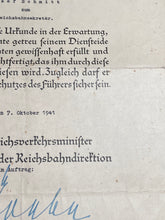 Schmitt
zum
ichsbahnsekretär.
e Urkunde in der Erwartung,
nte getreu seinem Diensteide
hten gewissenhaft erfüllt und
htfertigt, das ihm durch diese
iesen wird. Zugleich darf er
chutzes des Führers sicher sein.
den 7. Oktober 1941
ichsverkehrsminister
der Reichsbahndirektion
Im Auftrag: